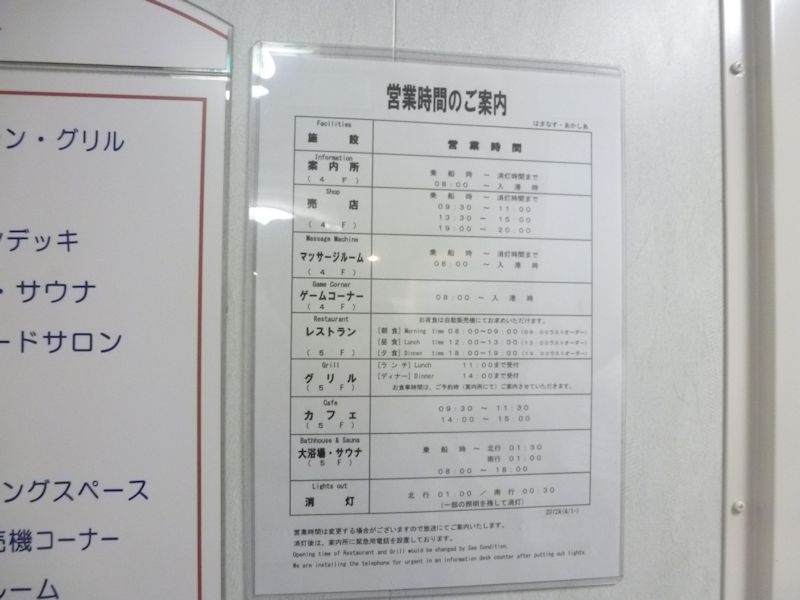 ン・グリル
デッキ
・サウナ
ードサロン
ングスペース
売機コーナー
ルーム
営業時間のご案内
はまなす・あかしあ
Facilities
施設 営業時間
Information
案内所 乗船時 ～ 消灯時間まで
(4F) 08:00 ～ 入港時
Shop 乗船時 ～ 消灯時間まで
売店 09:30 ～ 11:00
13:30 ～ 15:00
(4F) 19:00 ～ 20:00
Massage Machine
マッサージルーム 乗船時 ～ 消灯時間まで
(4F) 08:00 ～ 入港時
Game Corner
ゲームコーナー 08:00 ～ 入港時
(4F)
Restaurant お食事は自動販売機にてお求めいただけます。
レストラン [朝食] Morning time 08:00～09:00 (09:00ラストオーダー)
[昼食] Lunch time 12:00～13:00 (13:00ラストオーダー)
(5F) [夕食] Dinner time 18:00～19:00 (19:00ラストオーダー)
Grill [ランチ] Lunch 11:00まで受付
グリル [ディナー] Dinner 14:00まで受付
(5F) お食事時間は、ご予約時（案内所にて）ご案内させていただきます。
Cafe
カフェ 09:30 ～ 11:30
(5F) 14:00 ～ 15:00
Bathhouse & Sauna
大浴場・サウナ 乗船時 ～ 北行 01:30
(5F) 南行 01:00
08:00 ～ 18:00
Lights out
消灯 北行 01:00 ／ 南行 00:30
(一部の照明を残して消灯)
2012A(4/1-)
営業時間は変更する場合がございますので放送にてご案内いたします。
消灯後は、案内所に緊急用電話を設置しております。
Opening time of Restaurant and Grill would be changed by Sea Condition.
We are installing the telephone for urgent in an information desk counter after putting out lights.